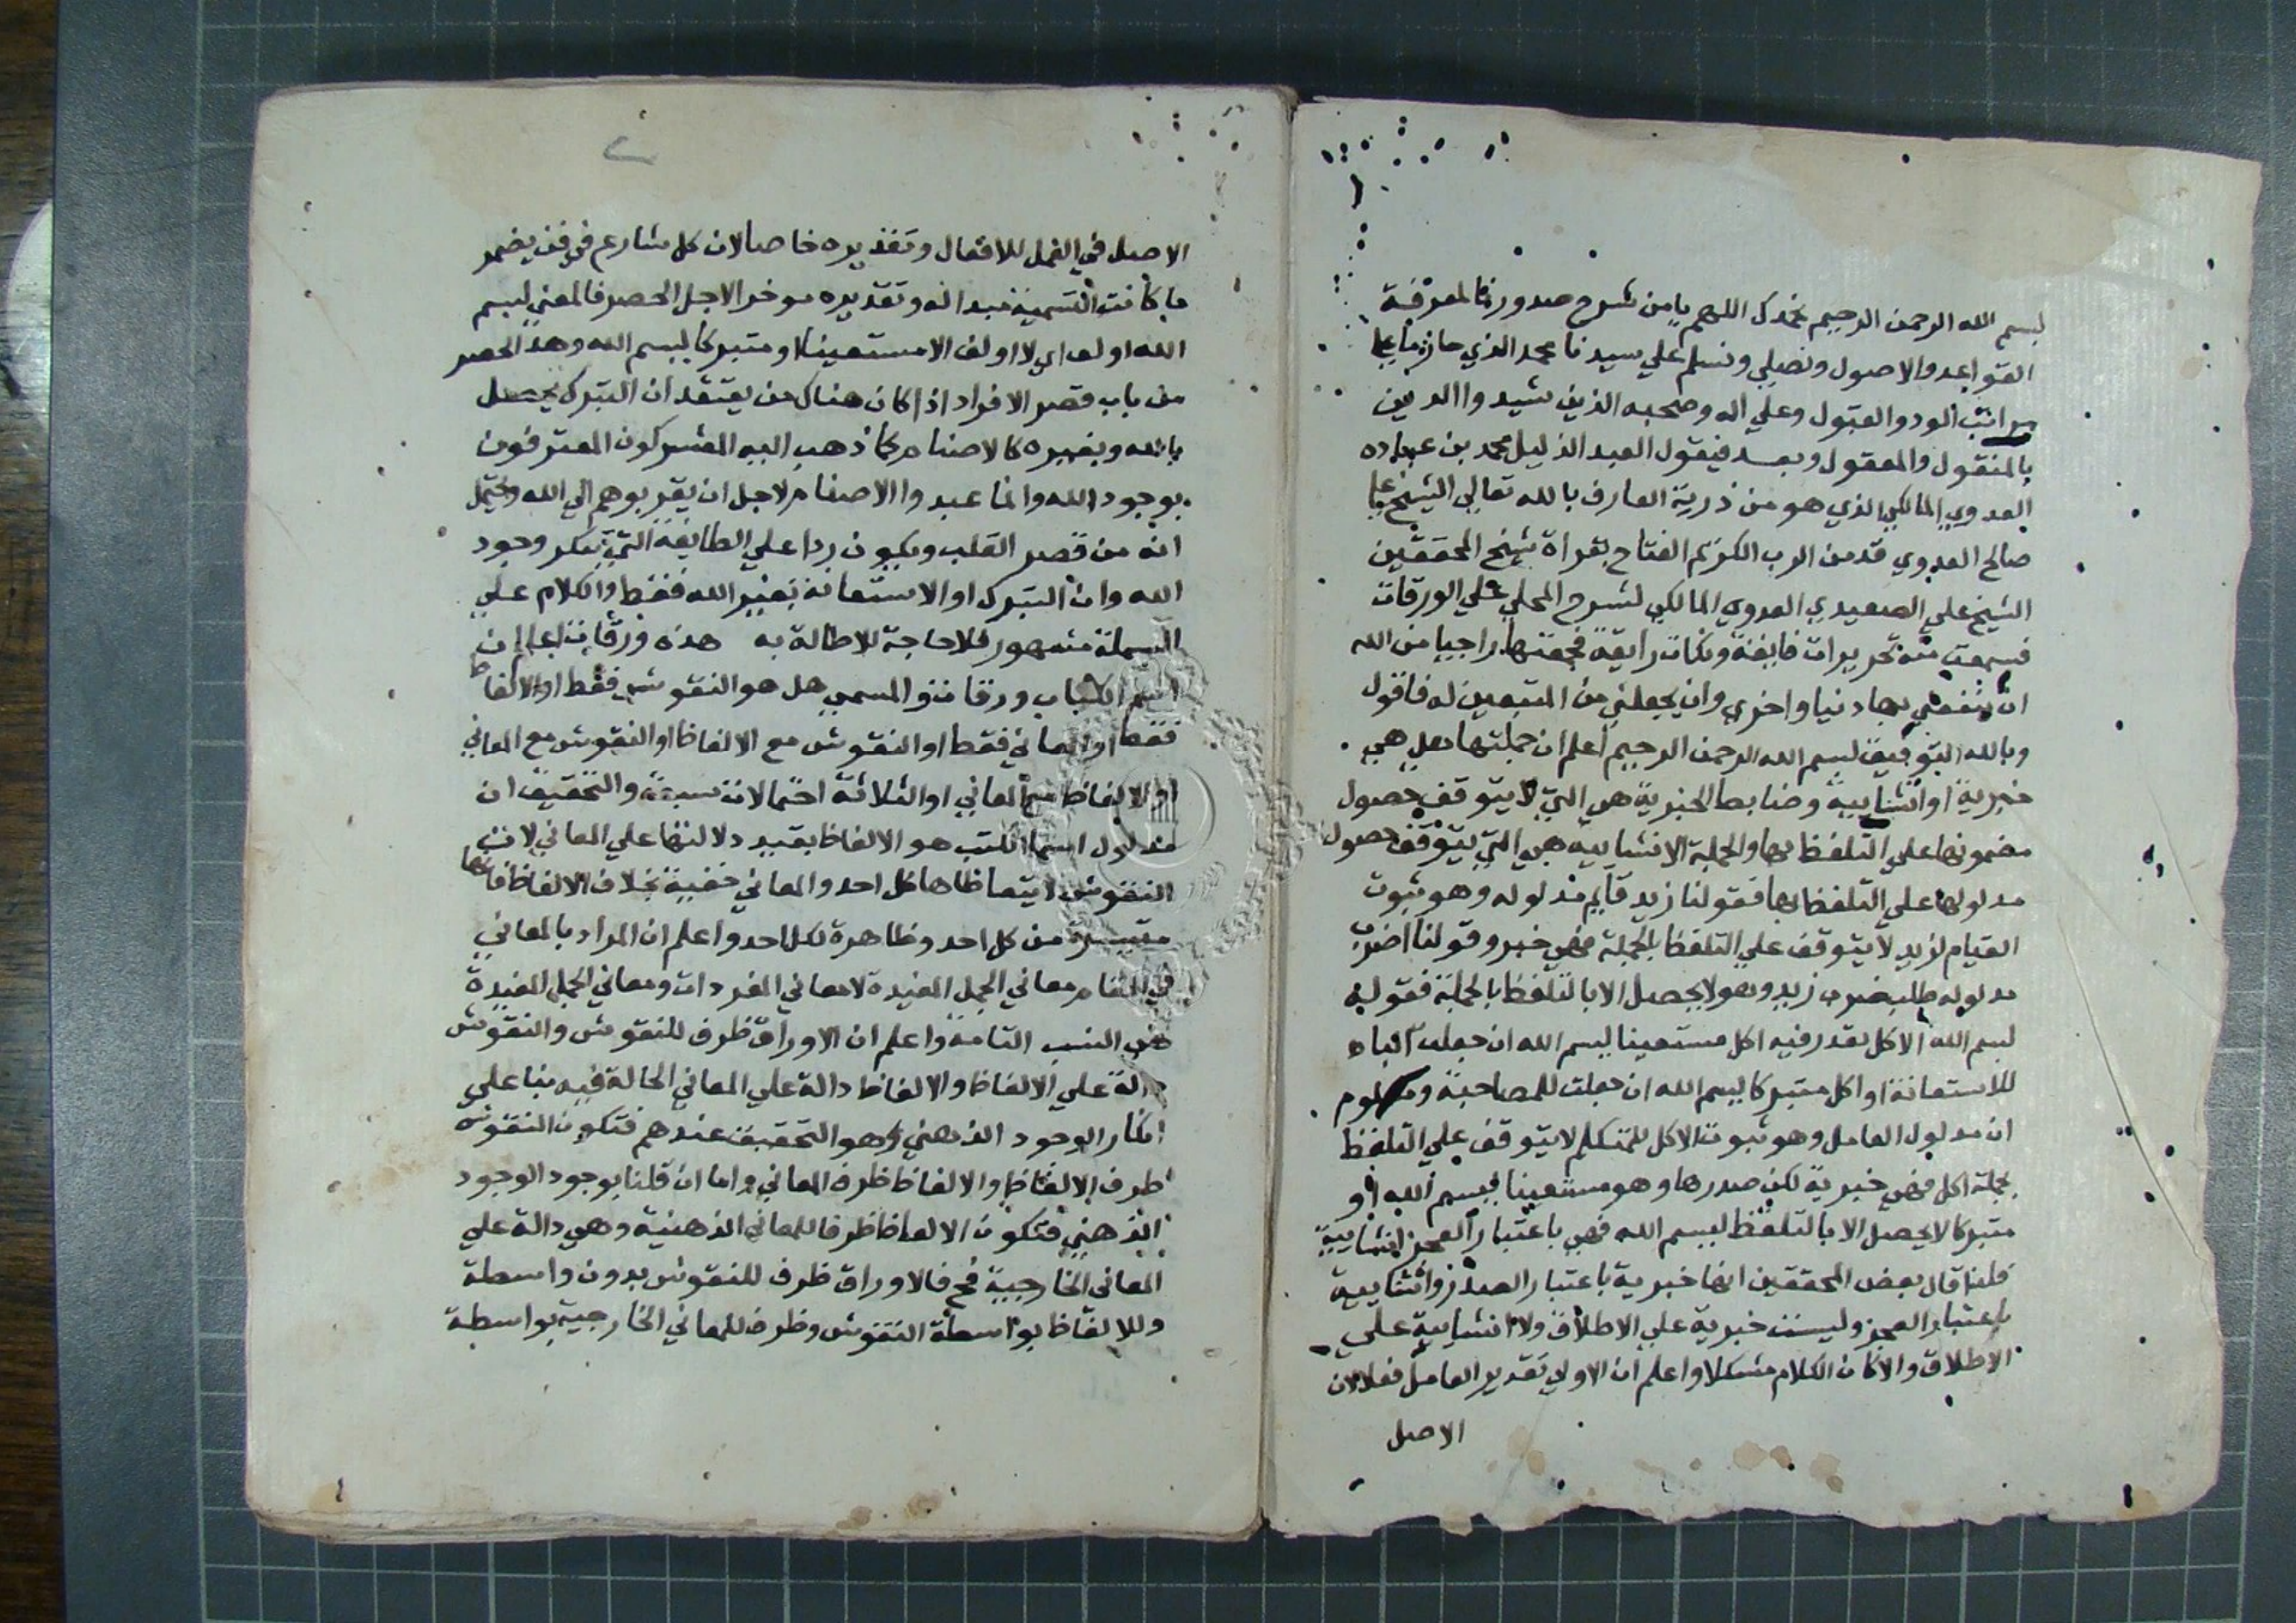 بسم الله الرحمن الرحيم نحمدك اللهم يا من شرح صدورنا لمعرفة
القواعد والاصول ونصلي ونسلم علي سيدنا محمد الذي حاز من اعلا
مراتب الود والقبول وعلي اله وصحبه الذين شيدوا الدين
بالمنقول والمعقول وبعد فيقول العبد الذليل محمد بن عباده
العدوي المالكي الذي هو من ذرية العارف بالله تعالي الشيخ علي
صالح العدوي قد من الرب الكريم الفتاح بقراة شيخ المحققين
الشيخ علي الصعيدي العدوي المالكي لشرح المحلي علي الورقات
فسمعت منه تحريرات فايقة ونكات رايقة فجمعتها راجيا من الله
ان ينفعني بها دنيا واخري وان يجعلني من المتبعين له فاقول
وبالله التوفيق بسم الله الرحمن الرحيم اعلم ان جملتها هل هي
خبرية او انشايية وضابط الخبرية هي التي لا يتوقف حصول
مضمونها علي التلفظ بها والجملة الانشاييه هي التي يتوقف حصول
مدلولها علي التلفظ بها فقولنا زيد قايم مدلوله وهو ثبوت
القيام لزيد لا يتوقف علي التلفظ بالجملة فهي خبر وقولنا اضرب
مدلوله طلب ضرب زيد وهو لا يحصل الا بالتلفظ بالجملة فقوله
بسم الله الاكل يقدر فيه اكل مستعينا ببسم الله ان جعلت الباء
للاستعانة او اكل متبركا ببسم الله ان جعلت للمصاحبة ومعلوم
ان مدلول العامل وهو ثبوت الاكل للمتكلم لا يتوقف علي التلفظ
بجملة اكل فهي خبرية لكن صدرها وهو مستعينا ببسم الله او
متبركا لا يحصل الا بالتلفظ ببسم الله فهي باعتبار العجز انشايية
فلذا قال بعض المحققين انها خبرية باعتبار الصدر وانشايية
باعتبار العجز وليست خبرية علي الاطلاق ولا انشايية علي
الاطلاق والا كان الكلام مشكلا واعلم ان الاولي تقدير العامل فعلا لان
الاصل
٢
الاصل في العمل للافعال وتقديره خاصا لان كل شارع في فن يضمر
ما كانت التسمية مبدا له وتقديره موخرا لاجل الحصر فالمعني بسم
الله اولف اي لا اولف الا مستعينا او متبركا ببسم الله وهذا الحصر
من باب قصر الافراد اذا كان هناك من يعتقد ان التبرك يحصل
بالله وبغيره كالاصنام كما ذهب اليه المشركون المعترفون
بوجود الله وانما عبدوا الاصنام لاجل ان يقربوهم الي الله ويحتمل
انه من قصر القلب ويكون ردا علي الطايفة التي تنكر وجود
الله وان التبرك او الاستعانة بغير الله فقط والكلام علي
البسملة مشهور فلا حاجة للاطالة به هذه ورقات اعلم ان
اسم الكتاب ورقات والمسمي هل هو النقوش فقط او الالفاظ
فقط او المعاني فقط او النقوش مع الالفاظ او النقوش مع المعاني
او الالفاظ مع المعاني او الثلاثة احتمالات سبعة والتحقيق ان
مدلول اسما الكتب هو الالفاظ بقيد دلالتها علي المعاني لان
النقوش لا يتعاطاها كل احد والمعاني خفية بخلاف الالفاظ فانها
متيسرة من كل احد وظاهرة لكل احد واعلم ان المراد بالمعاني
في المقام معاني الجمل المفيدة لا معاني المفردات ومعاني الجمل المفيدة
هي النسب التامة واعلم ان الاوراق ظرف للنقوش والنقوش
دالة علي الالفاظ والالفاظ دالة علي المعاني الحالة فيه بنا علي
انكار الوجود الذهني وهو التحقيق عندهم فتكون النقوش
ظرف الالفاظ والالفاظ ظرف المعاني واما ان قلنا بوجود الوجود
الذهني فتكون الالفاظ ظرفا للمعاني الذهنية وهي دالة علي
المعاني الخارجية فح فالاوراق ظرف للنقوش بدون واسطة
وللالفاظ بواسطة النقوش وظرف للمعاني الخارجية بواسطة